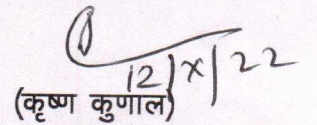 12/X/22
(कृष्ण कुणाल)